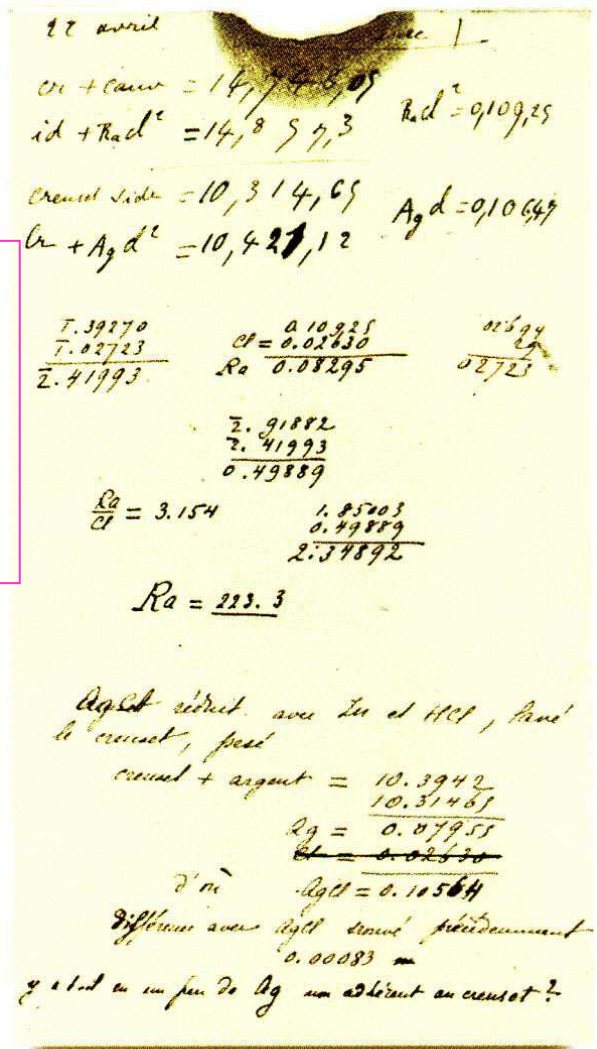 22 avril
1
cr + couv = 14,748,05
Racl² = 0,109,25
id + Racl² = 14,857,3
creuset vide = 10,314,65
Agcl = 0,10647
Cr + Agcl² = 10,421,12
1̄.39270
1̄.02723
2̄.41993
0.10925
Cl = 0.02630
Ra 0.08295
02694
29
02723
2̄.91882
2̄.41993
0.49889
Ra/Cl = 3.154
1.85003
0.49889
2.34892
Ra = 223.3
AgCl réduit avec Zn et HCl, lavé
le creuset, pesé
creuset + argent = 10.3942
10.31465
Ag = 0.07955
Cl = 0.02630
d'où AgCl = 0.10564
Différence avec AgCl trouvé précédemment
0.00083
y a t-il eu un peu de Ag non adhérent au creuset ?